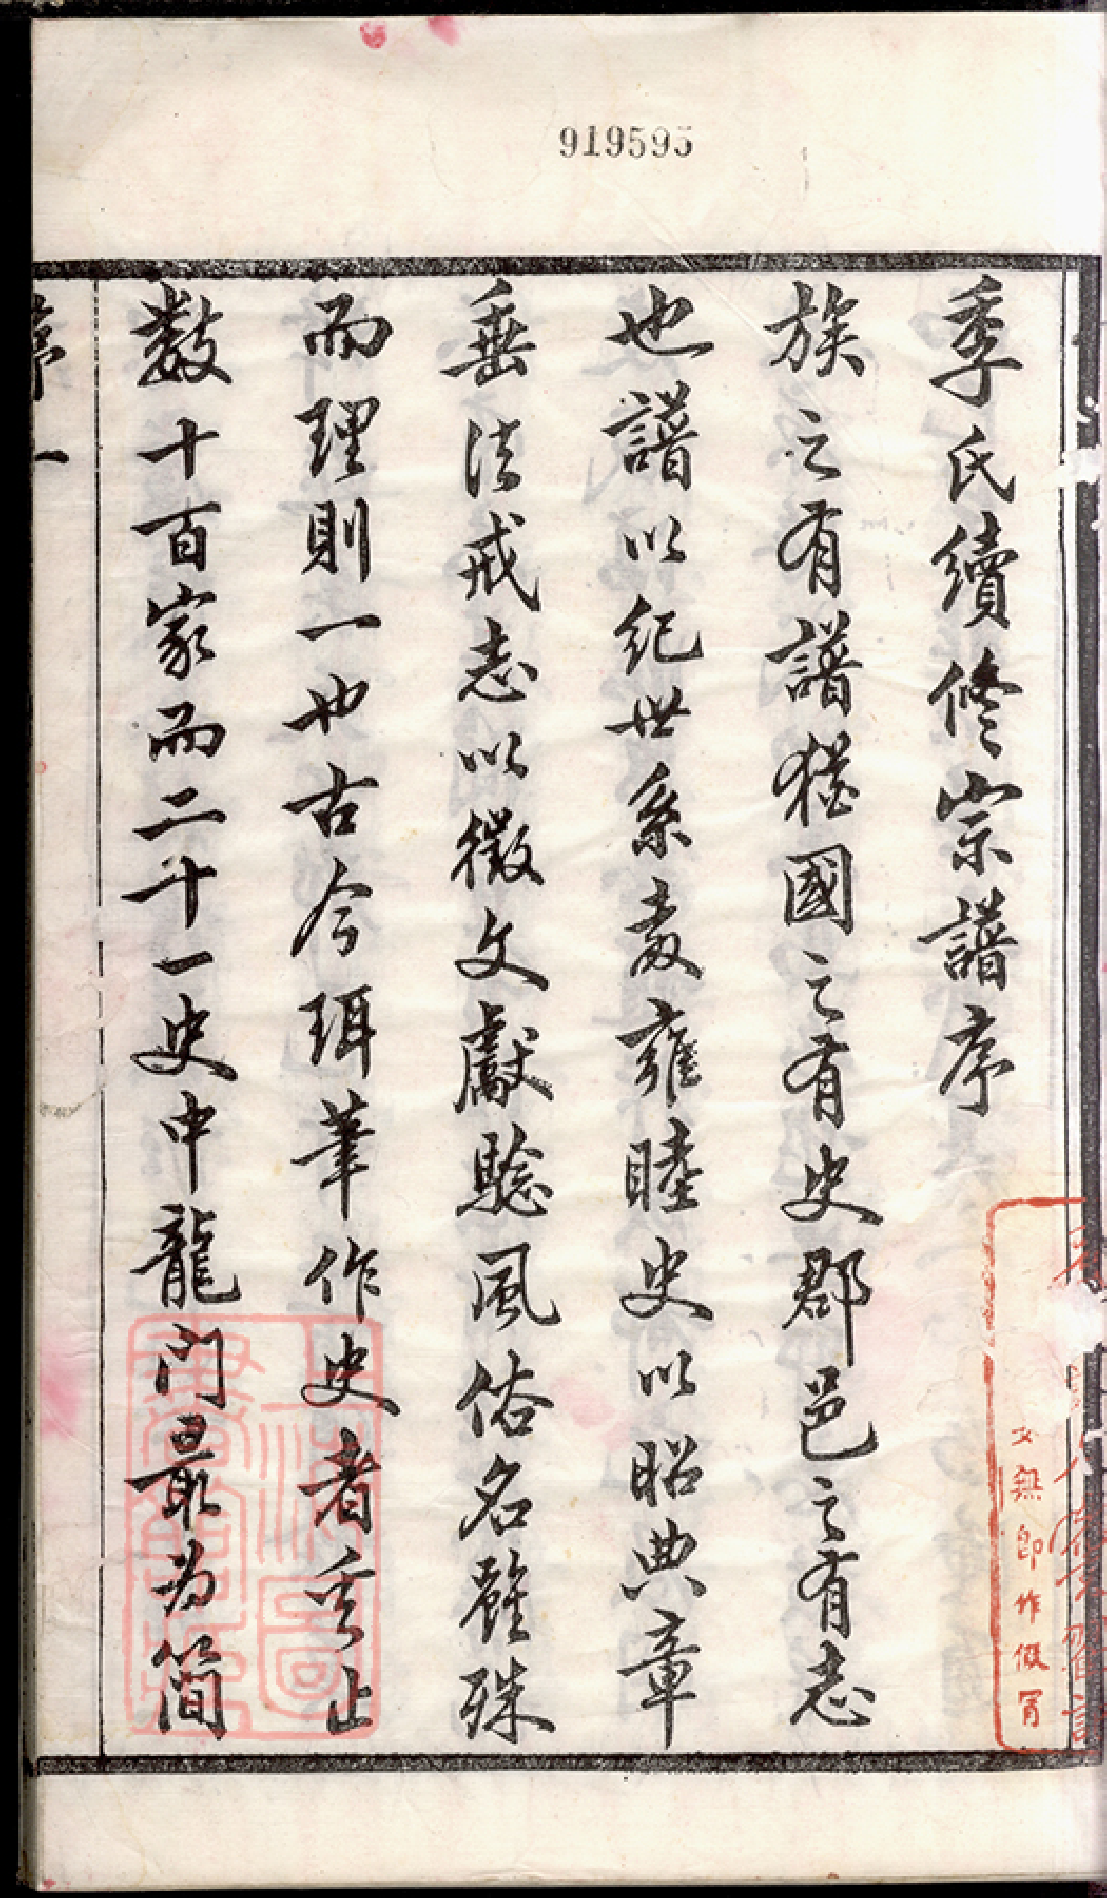 919595
季氏續修宗譜序
族之有譜猶國之有史郡邑之有志
也譜以紀世系敦雍睦史以昭典章
垂法戒志以徵文獻驗風俗名雖殊
而理則一也古今珥筆作史者奚止
數十百家而二十一史中龍門最為簡
第一
無即作假冒